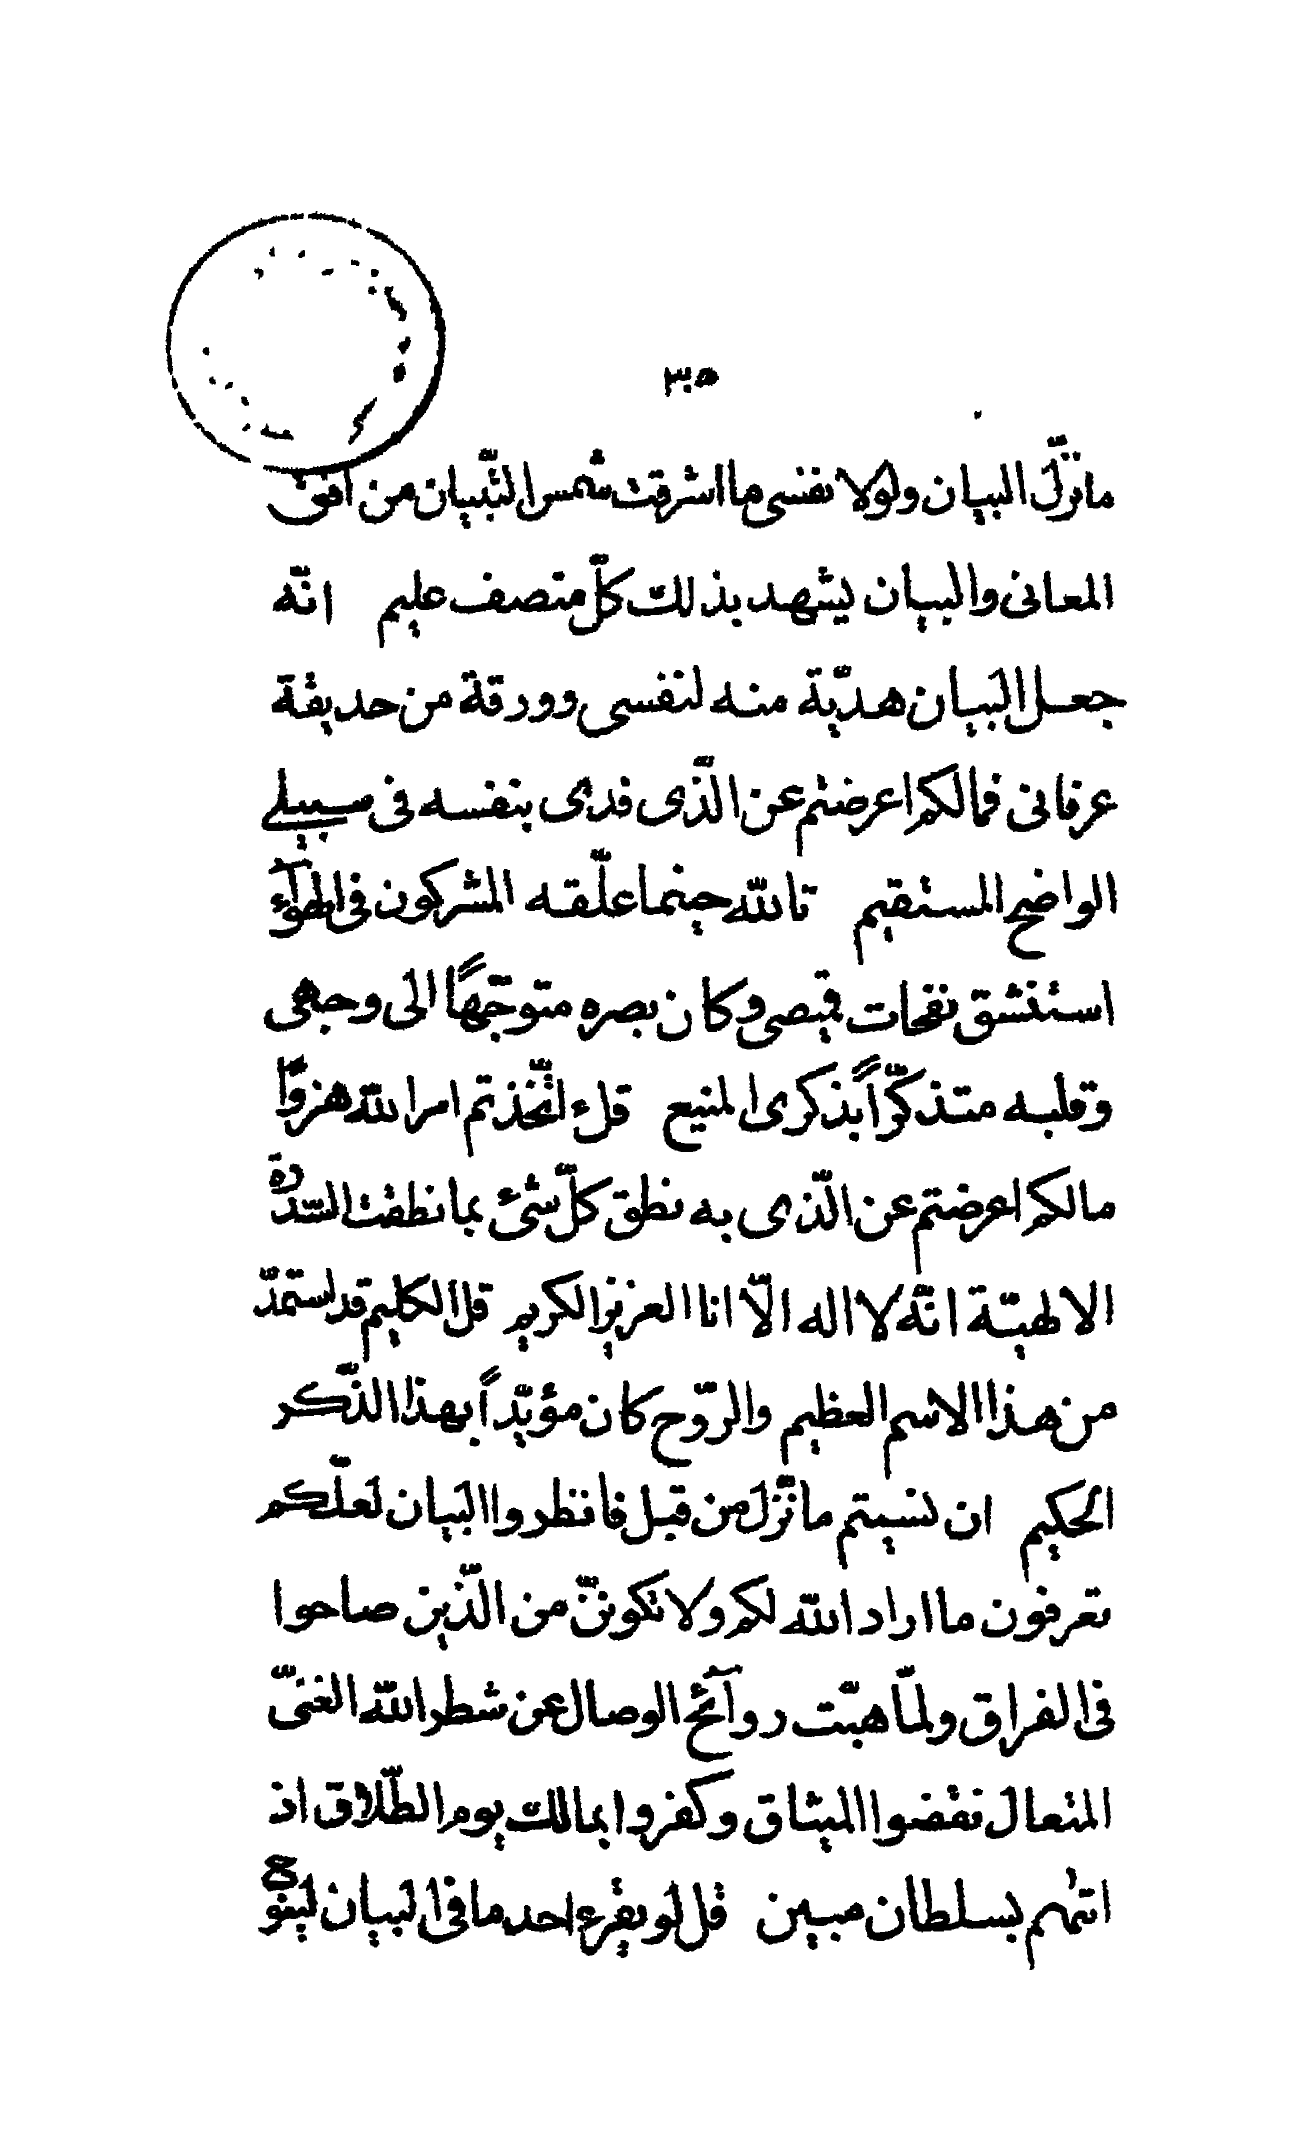 ٣٠٥
ما نزّل البيان ولولا نفسى ما اشرقت شمس التّبيان من افق
المعانى والبيان يشهد بذلك كلّ منصف عليم انّه
جعل البيان هديّة منه لنفسى وورقة من حديقة
عرفانى فمالكم اعرضتم عن الّذى فدى بنفسه فى سبيلى
الواضح المستقيم تالله حينما علّقه المشركون فى الهوآء
استنشق نفحات قميصى وكان بصره متوجّهاً الى وجهى
وقلبه متذكّراً بذكرى المنيع قل ء اتّخذتم امر الله هزوًا
مالكم اعرضتم عن الّذى به نطق كلّ شئ بما نطقت السّدرة
الالهيّة انّه لا اله الّا انا العزيز الكريم قل الكليم قد استمدّ
من هذا الاسم العظيم والرّوح كان مؤيّداً بهذا الذّكر
الحكيم ان نسيتم ما نزّل من قبل فانظروا البيان لعلّكم
تعرفون ما اراد الله لكم ولا تكوننّ من الّذين صاحوا
فى الفراق ولمّا هبّت روآئح الوصال عن شطر الله الغنىّ
المتعال نقضوا الميثاق وكفروا بمالك يوم الطّلاق اذ
اتىٰهم بسلطان مبين قل لو يقرء احد ما فى البيان لينوح